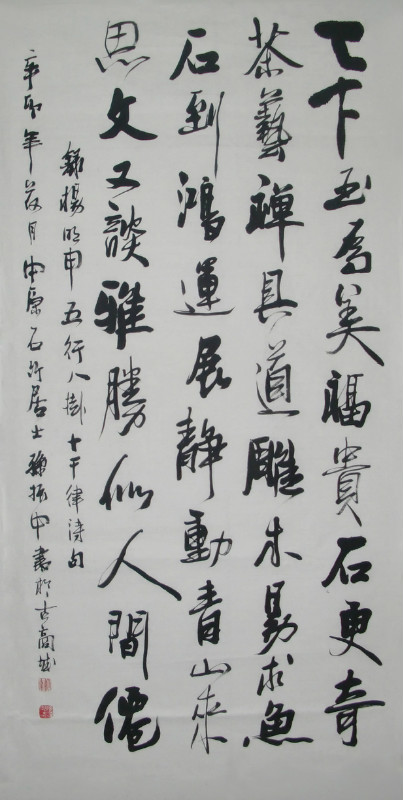 天下玉為美福貴石更奇
茶藝禪具道雕木易求魚
石到鴻運展静動青山來
思文又談雅勝似人間僊
録楊明申五行八卦十干律诗句
辛卯年月中原石竹居士孫振中書於古商城